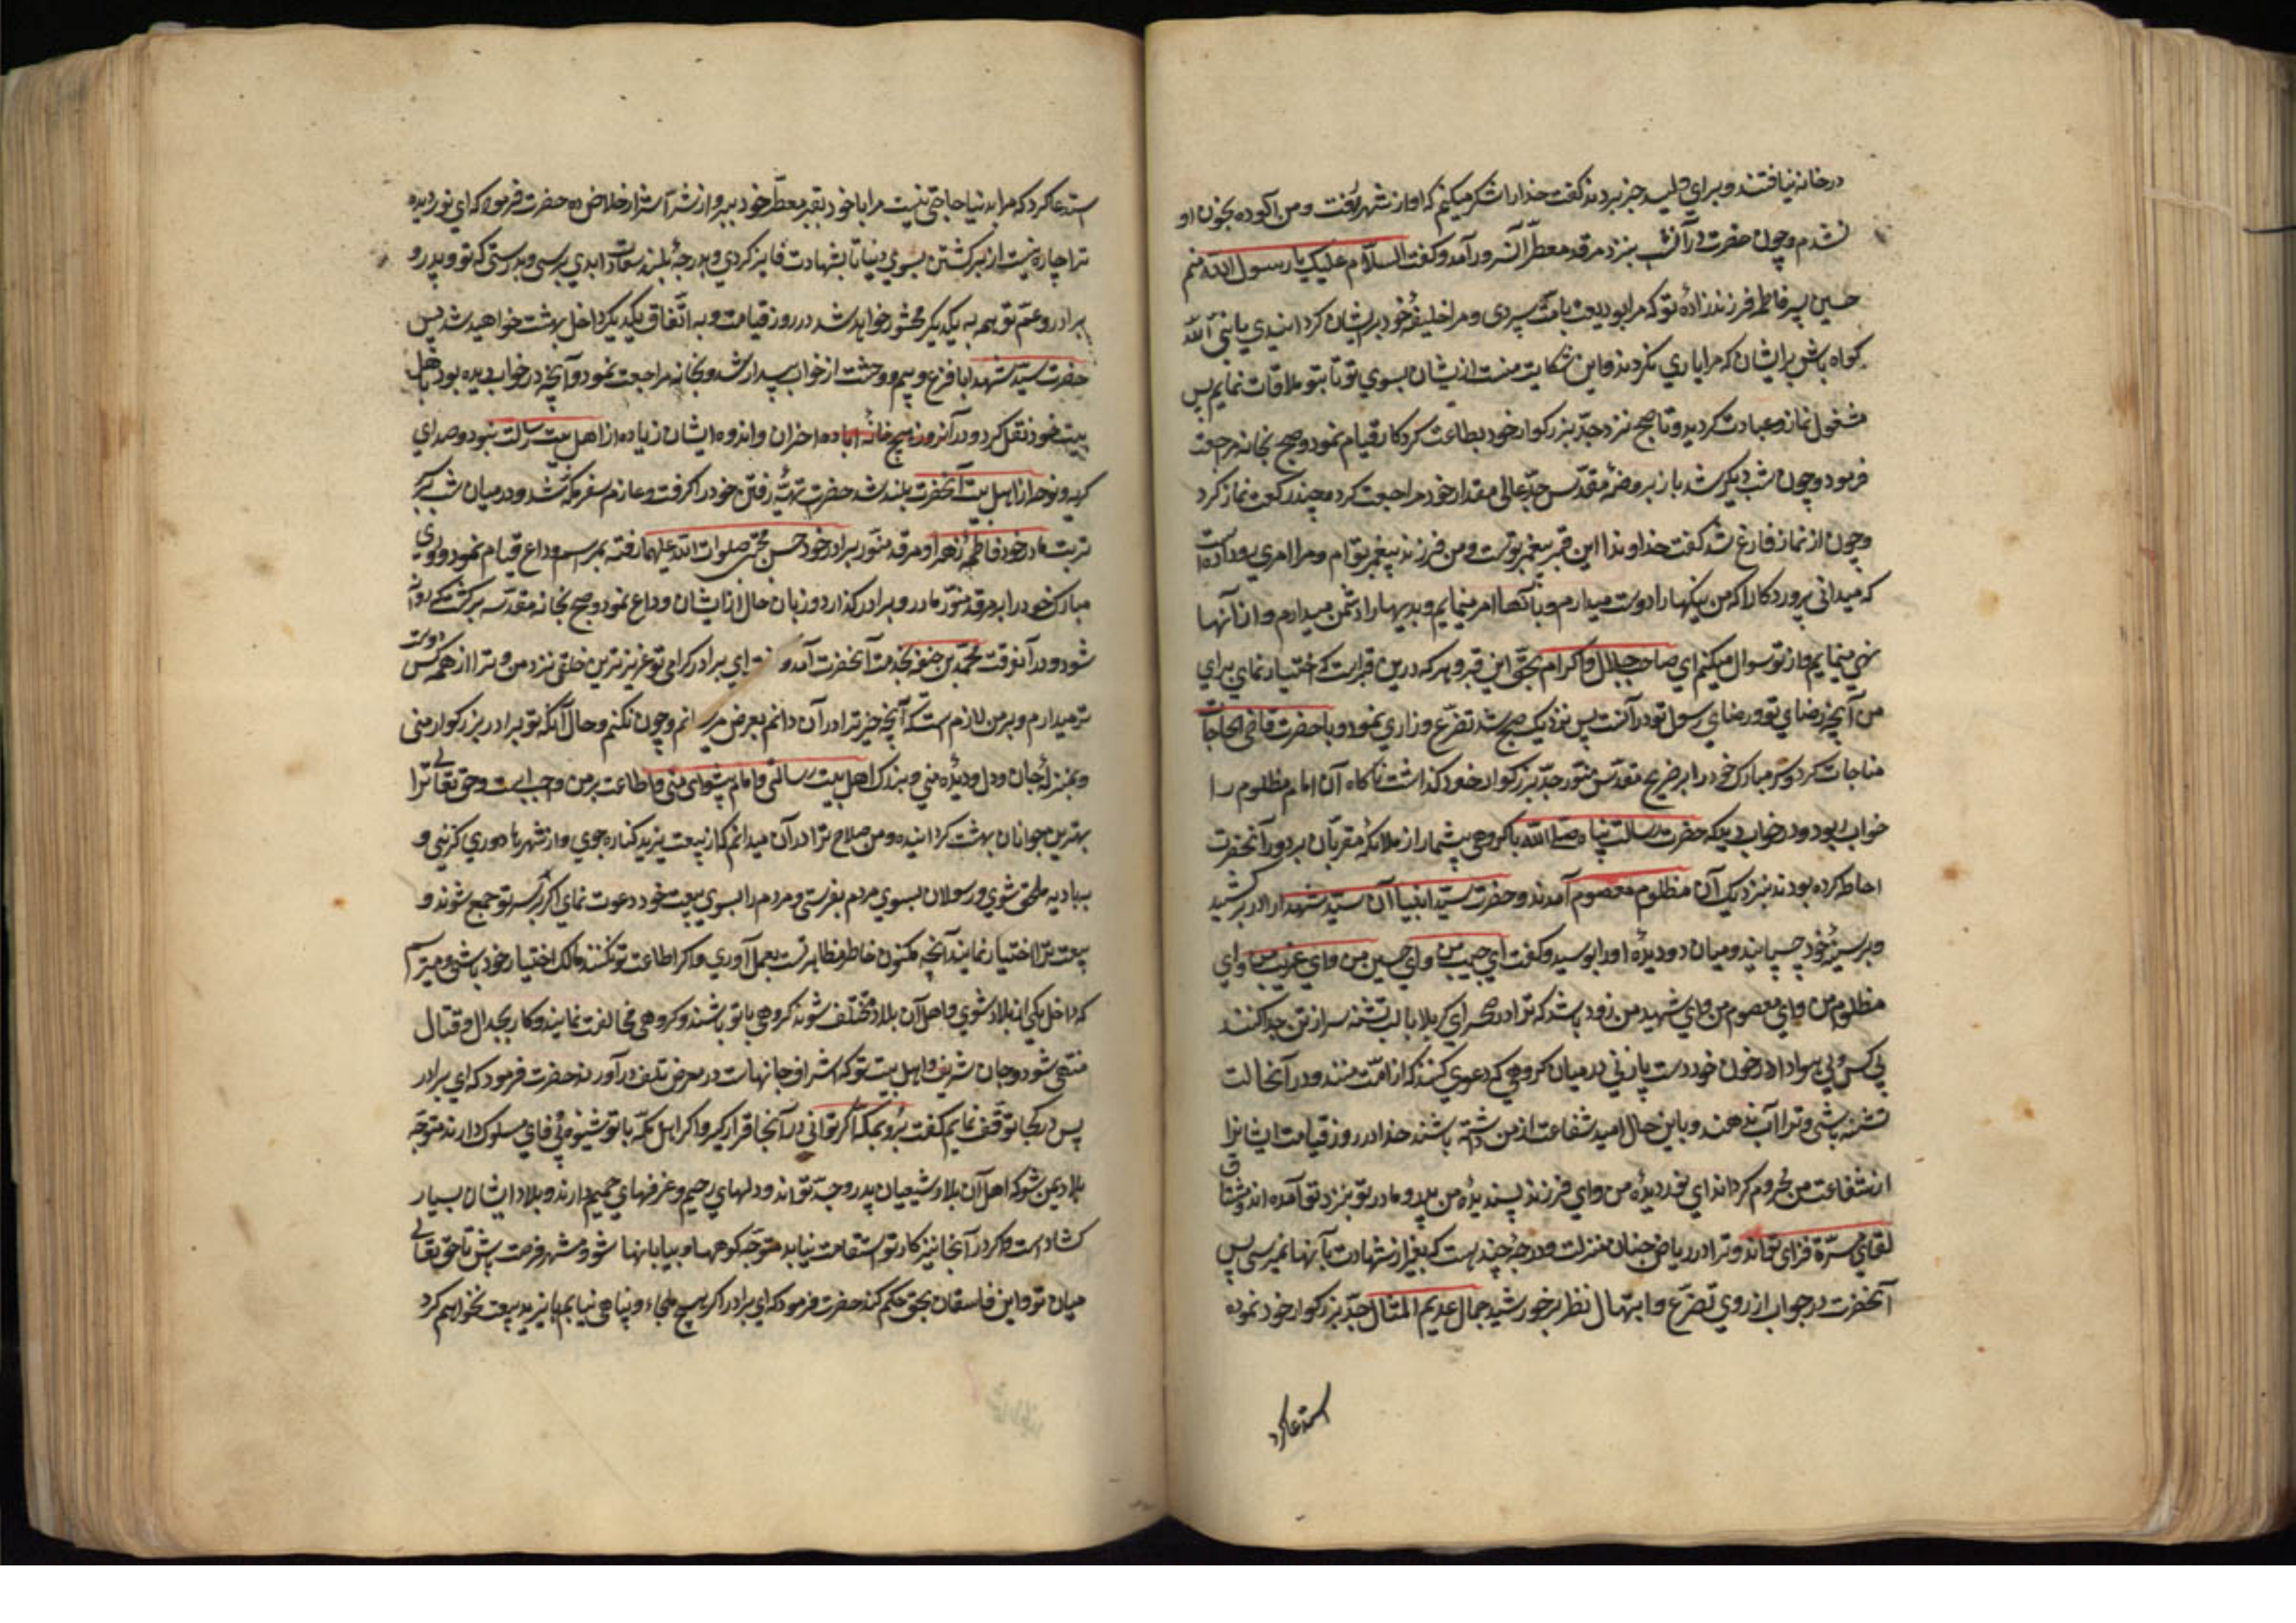 درخانه نیافتند و برای ولید خبر بردند گفت خدا را شکر میکنم که او از شهر رفت و من آلوده بخون او
نشدم و چون حضرت در آن شب بنزد مرقد معطر آن سرور آمد و گفت السلام علیک یا رسول الله منم
حسین پسر فاطمه فرزند زادهٔ تو که مرا بودیعت بامت سپردی و مرا خلیفهٔ خود بر ایشان گردانیدی یا نبی الله
گواه باش بر ایشان که مرا یاری نکردند و این شکایت منست از ایشان بسوی تو تا بتو ملاقات نمایم پس
مشغول نماز و عبادت گردید و تا صبح نزد جد بزرگوار خود بطاعت کردکار قیام نمود و صبح بخانه مراجعت
فرمود و چون شب دیگر شد باز بروضهٔ مقدس جد عالی مقدار خود مراجعت کرد و چند رکعت نماز کرد
و چون از نماز فارغ شد گفت خداوندا این قبر پیغمبر توست و من فرزند پیغمبر تو ام و مرا امری رو داده است
که میدانی پروردکارا که من نیکیها را دوست میدارم و بآنها امر مینمایم و بدیها را دشمن میدارم و از آنها
نهی مینمایم و از تو سوال میکنم ای صاحب جلال و اکرام بحق این قبر و هر که درین قبر است که اختیار نمای برای
من آنچه رضای تو و رضای رسول تو در آنست پس نزدیک صبح شد تضرع و زاری نمود و با حضرت قاضی الحاجات
مناجات کرد و سر مبارک خود را بر ضریح مقدس منور جد بزرگوار خود گذاشت ناکاه آن امام مظلوم را
خواب ربود و در خواب دید که حضرت رسالت پناه صلی الله با گروهی بیشمار از ملائکه مقربان بر دور آنحضرت
احاطه کرده بودند نزدیک آن مظلوم معصوم آمدند و حضرت سید انبیا آن سید شهدا را در بر کشید
و بر سینهٔ خود چسپانید و میان دو دیدهٔ او را بوسید و گفت ای حبیب من و ای حسین من و ای غریب من و ای
مظلوم من و ای معصوم من و ای شهید من زود باشد که ترا در صحرای کربلا با لب تشنه سر از تن جدا کنند
بی کس و بی در خون خود دست و پا زنی در میان گروهی که دعوی کنند که از امت منند و در آنحالت
تشنه باشی و ترا آب ندهند و باین حال امید شفاعت از من داشته باشند خدا در روز قیامت ایشانرا
از شفاعت من محروم گرداند ای نور دیدهٔ من و ای فرزند پسندیدهٔ من پدر و مادر تو بنزد تو آمده اند و مشتاق
لقای مسرة فزای تو اند و ترا در ریاض جنان منزلت و درجهٔ چند هست که بغیر از شهادت بآنها نمیرسی پس
آنحضرت در جواب از روی تضرع و ابتهال نظر بر خورشید جمال عدیم المثال جد بزرگوار خود نموده
استدعا کرد
استدعا کرد که مرا بدنیا حاجتی نیست مرا با خود بقبر معطر خود ببر و از شر اشرار خلاص ده حضرت فرمود که ای نور دیده
ترا چاره نیست از برگشتن بسوی دنیا تا بشهادت فایز گردی و بدرجهٔ بلند سعادت ابدی برسی و بدرستی که تو و پدر و
برادر و عم تو همه به یکدیگر محشور خواهید شد در روز قیامت و به اتفاق یکدیگر داخل بهشت خواهید شد پس
حضرت سید شهدا با فزع و بیم و وحشت از خواب بیدار شد و بخانه مراجعت نمود و آنچه در خواب دیده بود با اهل
بیت خود نقل کرد و در آنروز هیچ خانه آباده احزان و اندوه ایشان زیاده از اهل بیت رسالت نبود و صدای
گریه و نوحه از اهل بیت آنحضرت بلند شد حضرت تهیهٔ رفتن خود را گرفت و عازم سفر مکه شد و در میان شب بر سر
تربت مادر خود فاطمه زهرا و مرقد منور برادر خود حسن مجتبی صلوات الله علیهما رفته بمراسم وداع قیام نمود و روی
مبارک خود را بر مرقد منور مادر و برادر گذارد و زبان حال از ایشان وداع نمود و صبح بخانه مقدسه برگشت که روانه
شود و در آنوقت محمد بن حنفیه بخدمت آنحضرت آمد و ای برادر گرامی تو عزیزترین خلقی نزد من و ترا از همه کس دوست
تر میدارم و بر من لازم است که آنچه خیر ترا در آن دانم بعرض رسانم و چون نکنم و حال آنکه تو برادر بزرگوار منی
و بمنزلهٔ جان و دل و دیدهٔ منی و بزرگ اهل بیت رسالتی و امام پیشوای منی و اطاعت بر من واجب است و حق تعالی ترا
بهترین جوانان بهشت گردانیده و من صلاح ترا در آن میدانم که از بیعت یزید کناره جوی و از شهرها دوری گزینی و
ببادیه ملحق شوی و رسولان بسوی مردم بفرستی و مردم را بسوی بیعت خود دعوت نمای اگر بر سر تو جمع شوند و
بیعت ترا اختیار نمایند آنچه مکنون خاطر بعمل آوری و اگر اطاعت تو نکنند مالک اختیار خود باشی و میترسم
که داخل یکی از بلاد شوی و اهل آن بلاد مختلف شوند گروهی با تو باشند و گروهی مخالفت نمایند و کار بجدال و قتال
منتهی شود و جان شریف و اهل بیت تو که اشراف جانهاست در معرض تلف در آورند حضرت فرمود که ای برادر
پس در کجا توقف نمایم گفت برو بمکه اگر توانی در آنجا قرار گیر و اگر اهل مکه با تو شیوهٔ بی وفای مسلوک دارند متوجه
بلاد یمن شو که اهل آن بلاد شیعیان پدر و جد تو اند و دلهای رحیم و دارند و بلاد ایشان بسیار
گشاد است و اگر در آنجا نیز کار تو استقامت نیابد متوجه کوهها و بیابانها شو و منتظر فرصت باش تا حق تعالی
میان تو و این فاسقان بحق حکم کند حضرت فرمود که ای برادر اگر هیچ ملجاء و پناهی نیابم با یزید بیعت نخواهم کرد